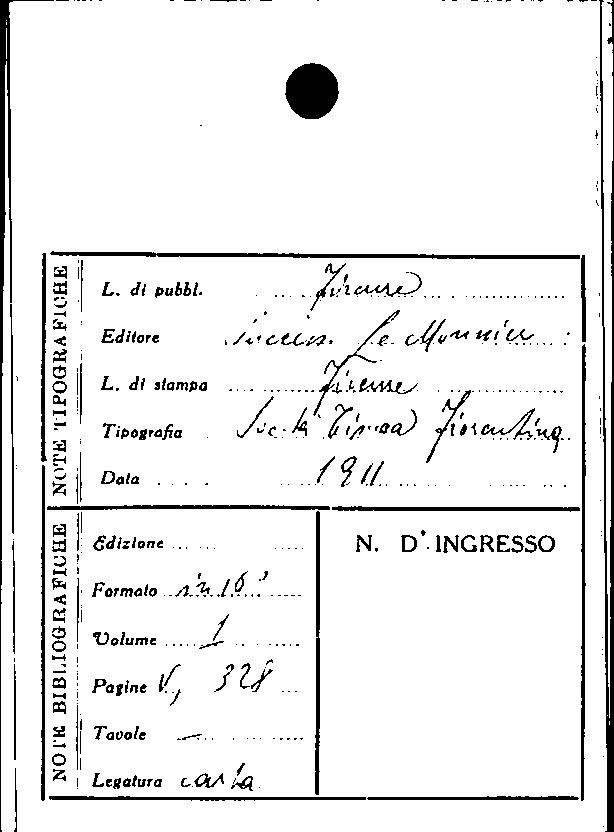 NOTE TIPOGRAFICHE
L. di pubbl. Firenze
Editore Success. Le Monnier
L. di stampa Firenze
Tipografia Soc.tà Tip.ca Fiorentina
Data 1911
NOTE BIBLIOGRAFICHE
Edizione
Formato in 16°
Volume 1
Pagine V, 328
Tavole —
Legatura carta
N. D'INGRESSO